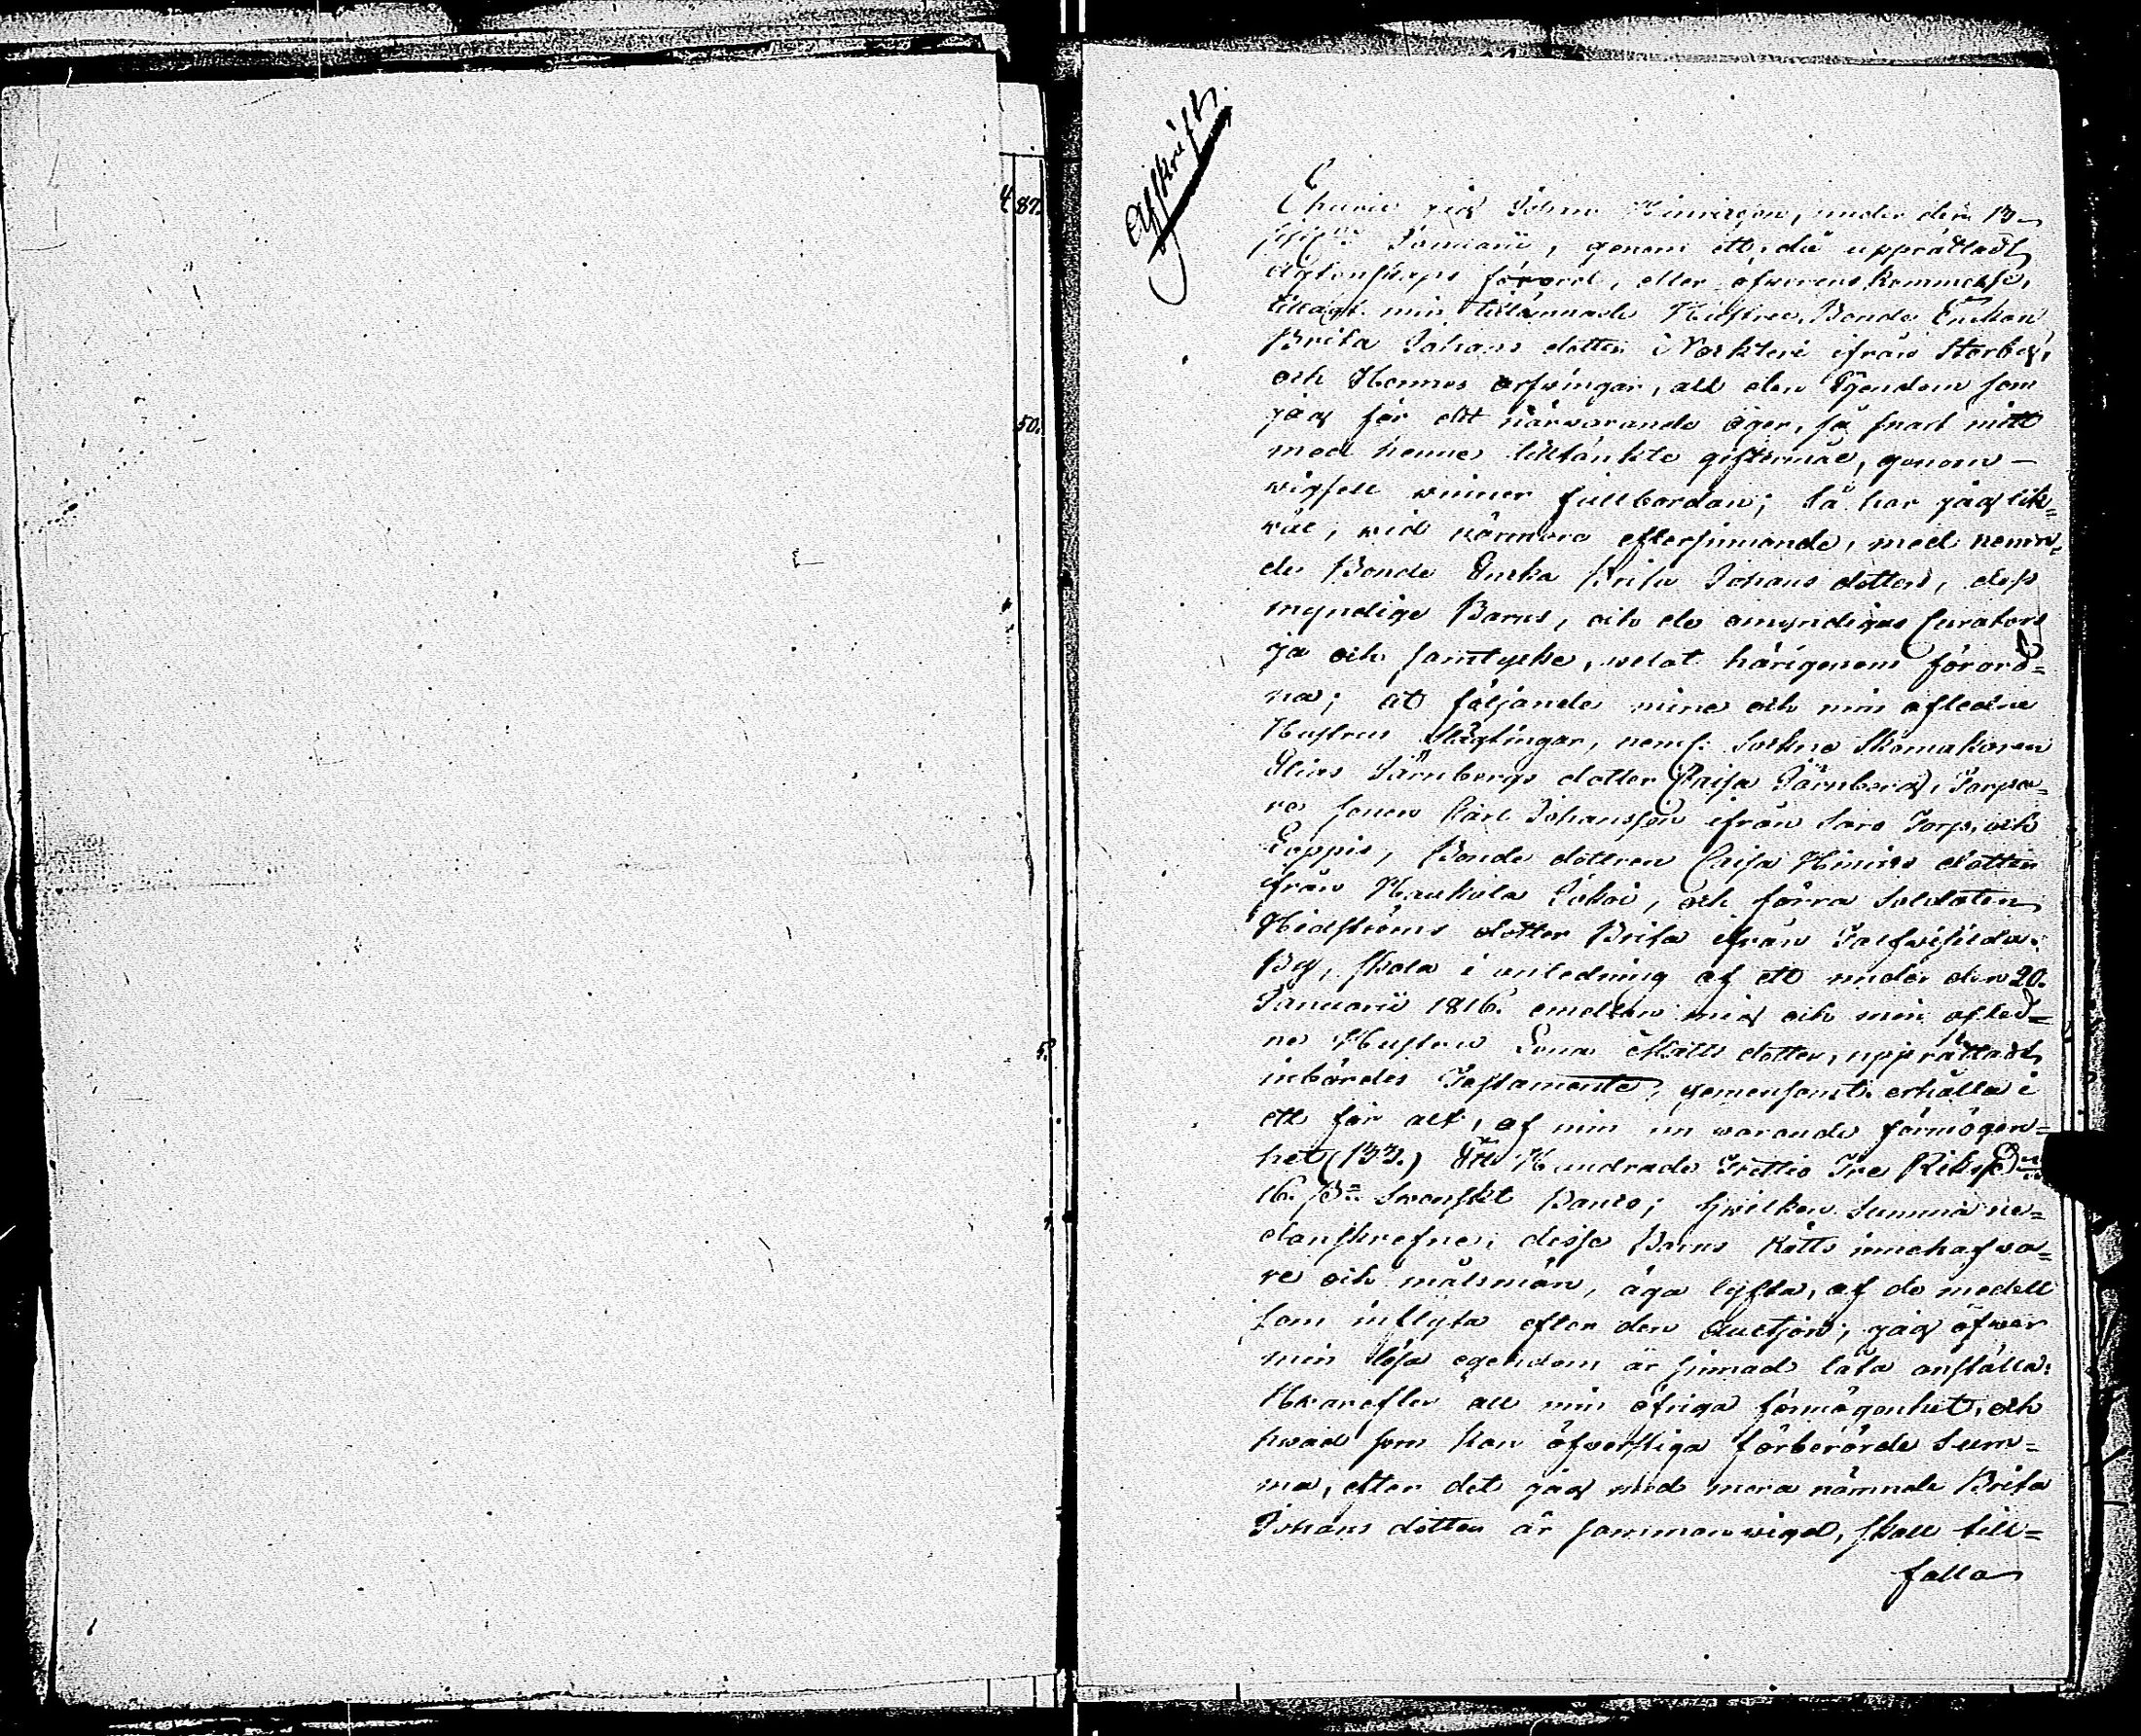 4 87.
50.
5.
Afskrift.
Ehuru jag Johan Hinricsson, under den 13
Januarii, genom ett, då upprättadt
Agtenskaps förord, eller öfwerens kommelse,
tillagt min tillämnade Hustru, Bonde Enckan
Brita Johans dotter i ifrån Storby,
och Hennes arfwingar, all den Egendom som
jag för det närwarande äger, så snart mitt
med henne tilltänkte giftermål, genom
wigsell winner fullbordan; Så har jag lik=
wäl, wid närmare eftersinnande, med nemn=
de Bonde Enka Brita Johans dotters, dess
myndige Barns, och de omyndigas Curators
ja och samtycke, welat härigenom förord=
na; at följande mine och min afledne
Hustrus Slägtingar, neml: Sockne Skomakaren
Elias Järnbergs dotter Caisa Järnberg, Torpa=
re sonen Karl Johansson ifrån Saro Torp, och
Loppis, Bonde dottren Caisa Hinrics dotter
ifrån Haukola Jokoi, och förra Soldaten
Hedströms dotter Brita ifrån
By, skola i anledning af ett under den 20.
Januarii 1816. emellan mig och min afled=
ne Hustru Lena Matts dotter, upprättadt
inbördes Testamente, gemensamt erhålla i
ett för alt, af min nu warande förmögen=
het (133.) Ett Hundrade Trettio Tre Riksd
16. ß Swenskt Banco; hwilken Summa ne=
danskrefne, desse Barns Rätts innehafwa=
re och målsmän, äga lyfta, af de medell
som inflyta efter den Auctjon, jag öfwer
min lösa egendom är sinnad låta anställa:
Hwarefter all min öfriga förmögenhet, och
hwad som kan öfwerstiga förberörde Sum=
ma, efter det jag med mera nämnde Brita
Johans dotter är sammanwigd, skall till=
falla